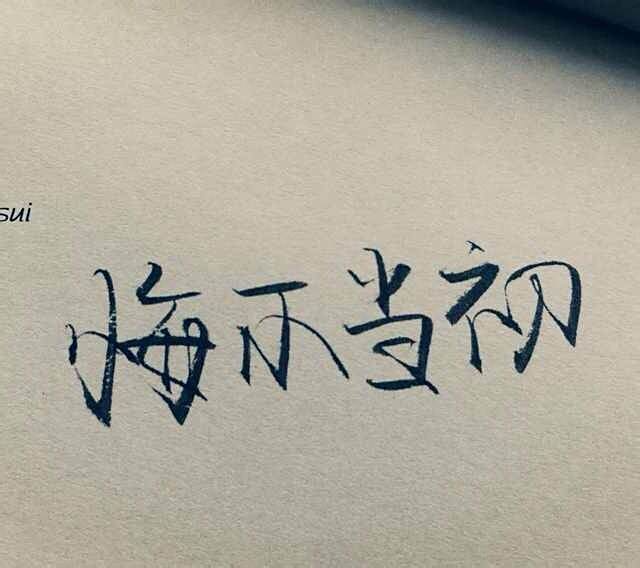 sui
悔不当初